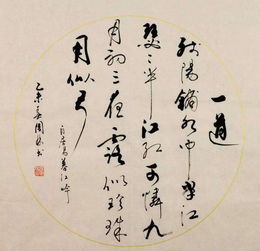 一道
残陽鋪水中半江
瑟々半江红可憐九
月初三夜露似珍珠
月似弓
白居易暮江吟
乙未書